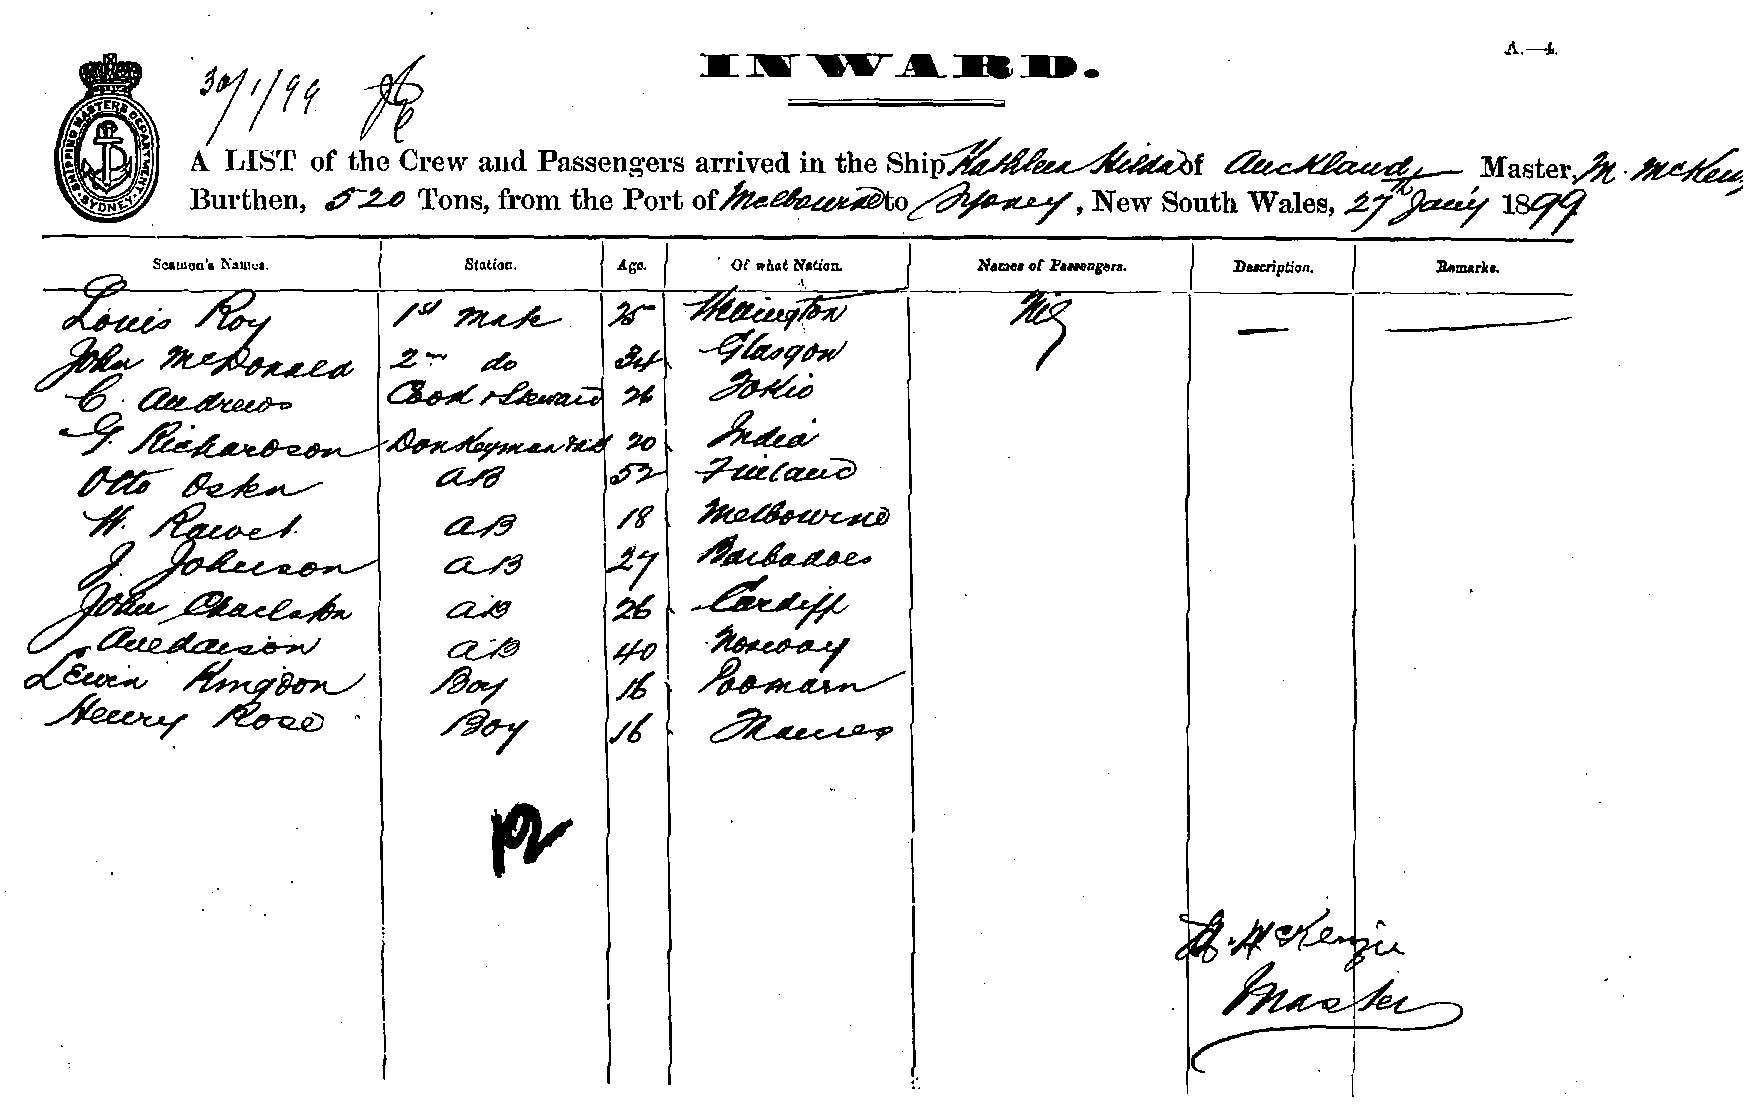 A.—4.
INWARD.
30/1/99
SHIPPING MASTERS DEPARTMENT SYDNEY
A LIST of the Crew and Passengers arrived in the Ship Kathleen Hilda of Auckland, Master, M. McKen
Burthen, 520 Tons, from the Port of Melbourne to Sydney, New South Wales, 27th Jany 1899
Seamen's Names. Station. Age. Of what Nation. Names of Passengers. Description. Remarks.
Louis Roy 1st Mate 25 Wellington Nil — —
John McDonald 2nd do 34 Glasgow
C. Andrews Cook & Steward 26 Tokio
G. Richardson Donkeyman 20 India
Otto Osken AB 52 Finland
H. AB 18 Melbourne
J. Johnson AB 27 Barbadoes
John Charleston AB 26 Cardiff
AB 40 Norway
Kingdon Boy 16
Henry Rose Boy 16 Thames
12
McKenzie
Master